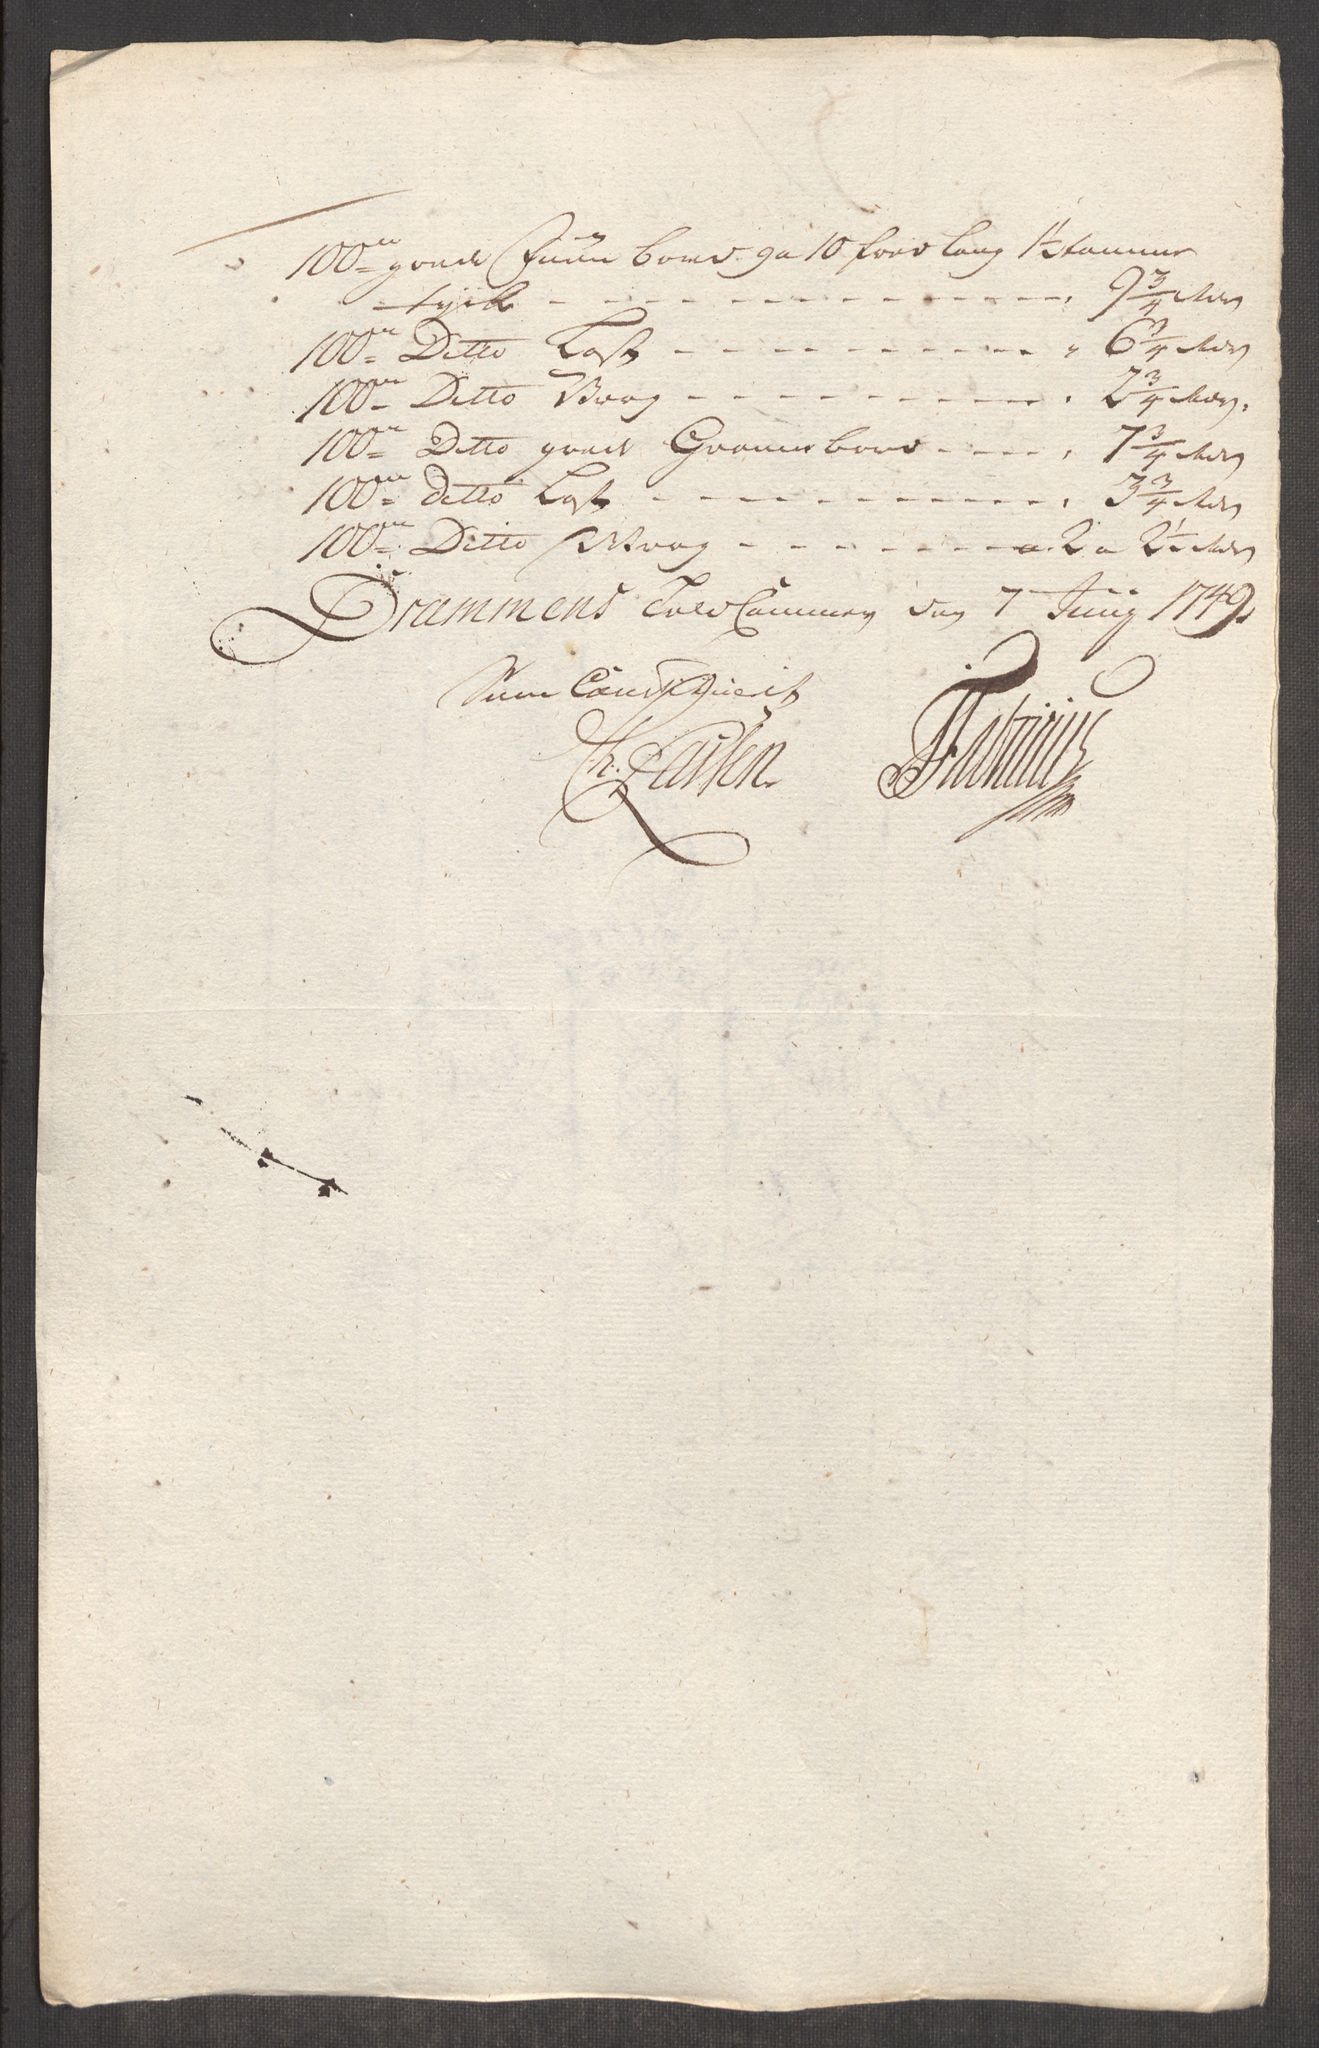 100de goede Furu bord ga 10 foed lang 1½ tommer
tyck - - - 9 3/4 Rdr
100de Ditto Last - - - 6 3/4 Rdr
100de Ditto Vrag - - - 2 3/4 Rdr
100de Ditto goede Granne bord - - - 7 3/4 Rdr
100de ditto Last - - - 3 3/4 Rdr
100de Ditto Vrag - - - a 2 a 2½ Rdr
Drammens Told Cammer den 7 Junij 1749.
Ch. Larsen